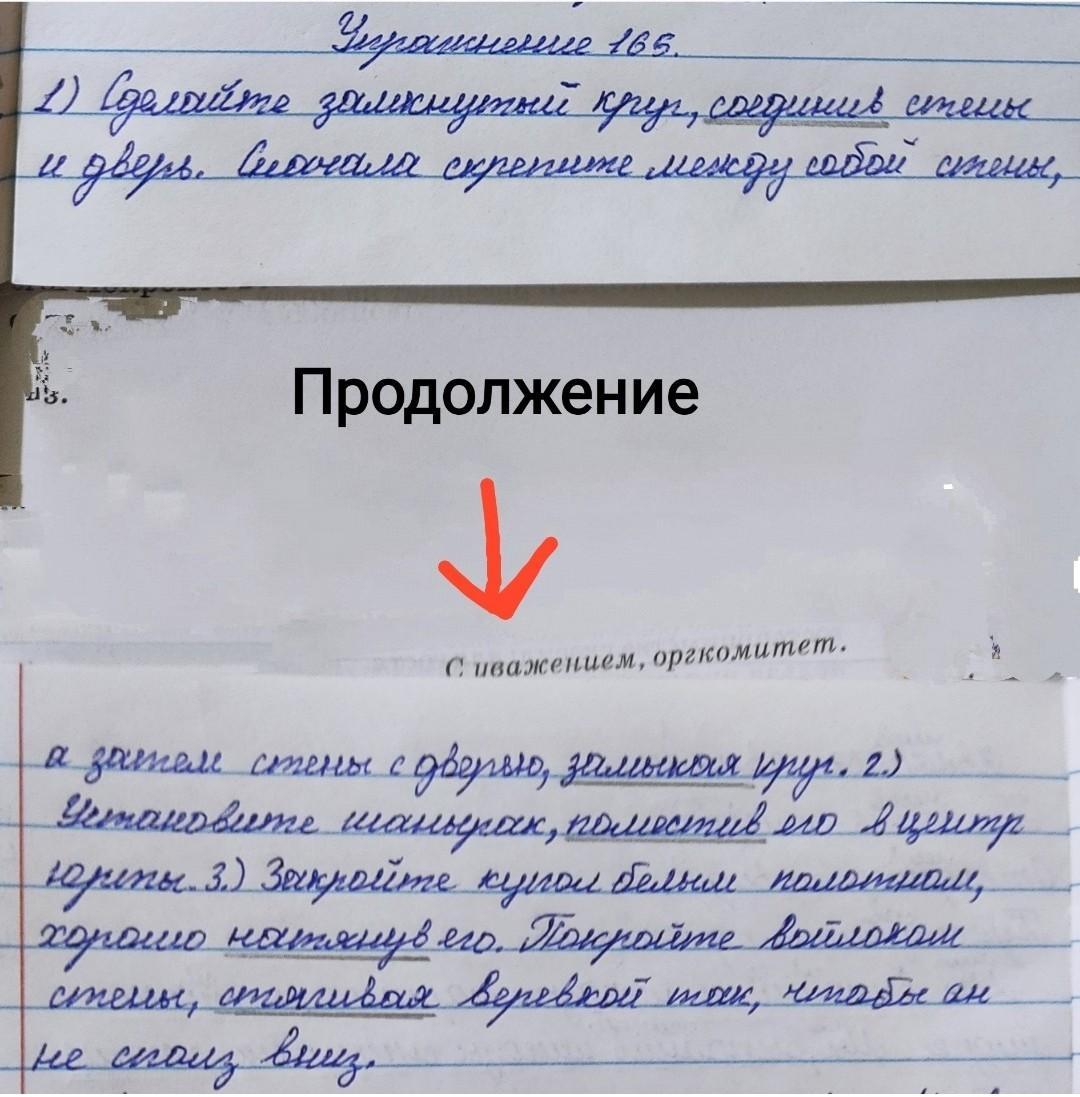 Упражнение 165.
1) Сделайте замкнутый круг, соединив стены
и дверь. Сначала скрепите между собой стены,
из.
Продолжение
С уважением, оргкомитет.
а затем стены с дверью, замыкая круг. 2.)
Установите шанырак, поместив его в центр
юрты. 3.) Закройте купол белым полотном,
хорошо натянув его. Покройте войлоком
стены, стягивая веревкой так, чтобы он
не сполз вниз.